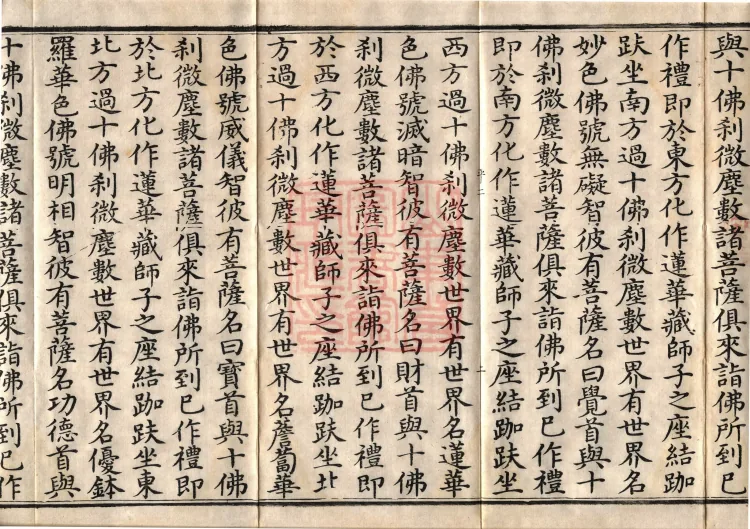 與十佛刹微塵數諸菩薩俱來詣佛所到已
作禮即於東方化作蓮華藏師子之座結跏
趺坐南方過十佛刹微塵數世界有世界名
妙色佛號無礙智彼有菩薩名曰覺首與十
佛刹微塵數諸菩薩俱來詣佛所到已作禮
即於南方化作蓮華藏師子之座結跏趺坐
西方過十佛刹微塵數世界有世界名蓮華
色佛號滅暗智彼有菩薩名曰財首與十佛
刹微塵數諸菩薩俱來詣佛所到已作禮即
於西方化作蓮華藏師子之座結跏趺坐北
方過十佛刹微塵數世界有世界名薝蔔華
色佛號威儀智彼有菩薩名曰寶首與十佛
刹微塵數諸菩薩俱來詣佛所到已作禮即
於北方化作蓮華藏師子之座結跏趺坐東
北方過十佛刹微塵數世界有世界名優鉢
羅華色佛號明相智彼有菩薩名功德首與
十佛刹微塵數諸菩薩俱來詣佛所到已作